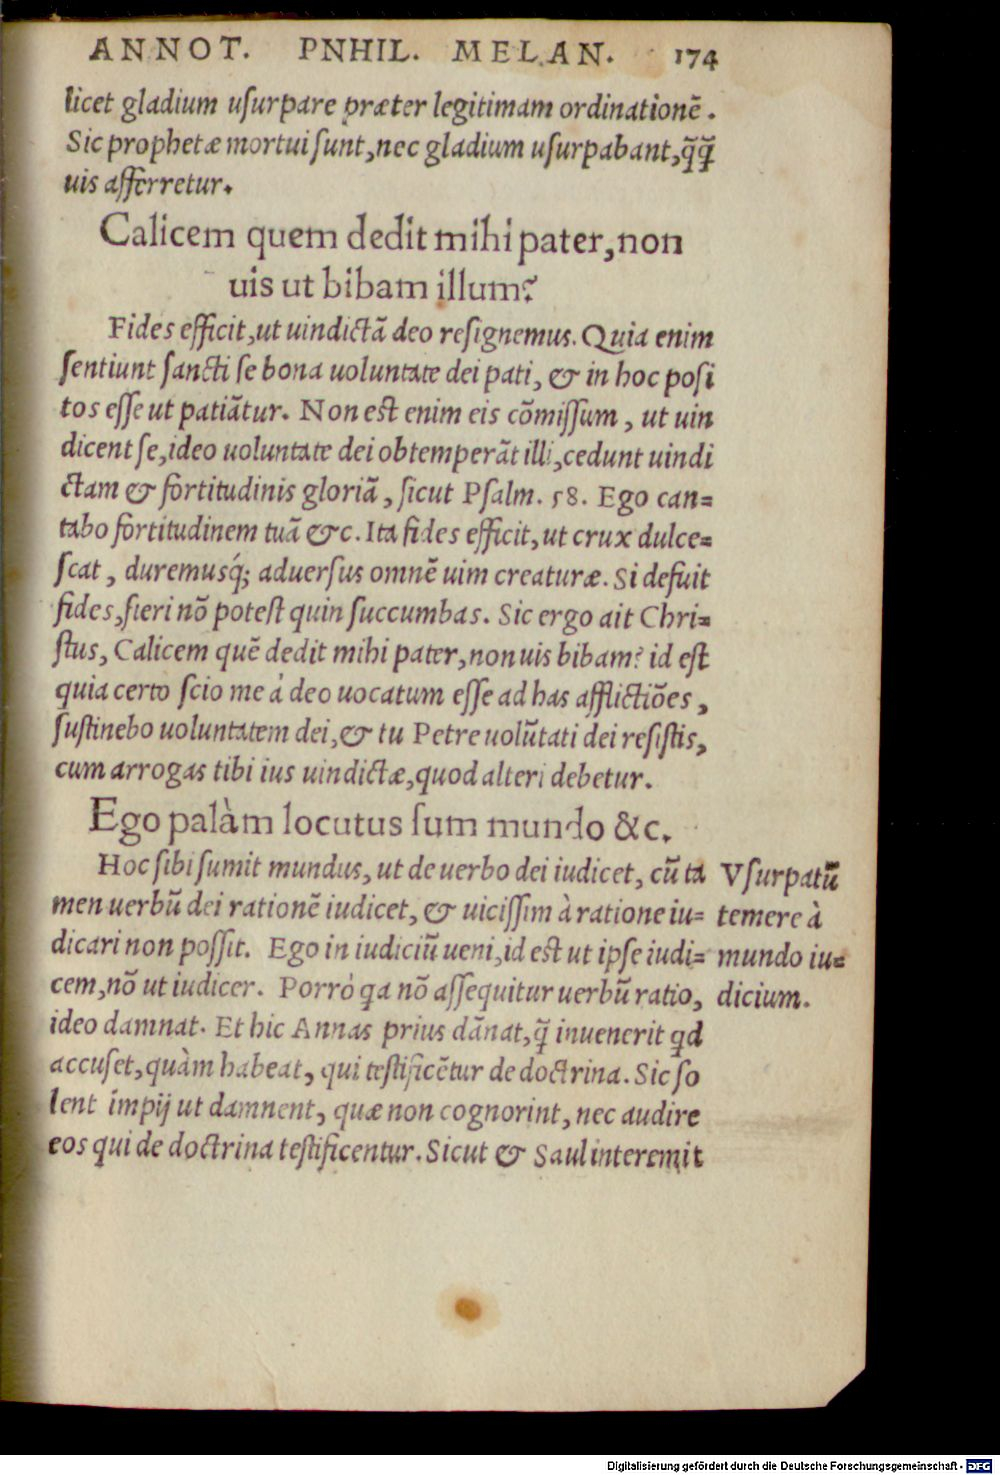 ANNOT. PNHIL. MELAN. 174
licet gladium uſurpare præter legitimam ordinationē.
Sic prophetæ mortui ſunt, nec gladium uſurpabant, q̃q̃
uis afferretur.
Calicem quem dedit mihi pater, non
uis ut bibam illum?
Fides efficit, ut uindictā deo reſignemus. Quia enim
ſentiunt ſancti ſe bona uoluntate dei pati, & in hoc poſi
tos eſſe ut patiātur. Non eſt enim eis cōmiſſum, ut uin
dicent ſe, ideo uoluntate dei obtemperāt illi, cedunt uindi
ctam & fortitudinis gloriā, ſicut Pſalm. 58. Ego can=
tabo fortitudinem tuā &c. Ita fides efficit, ut crux dulce=
ſcat, duremusq́; aduerſus omnē uim creaturæ. Si defuit
fides, fieri nō poteſt quin ſuccumbas. Sic ergo ait Chri=
ſtus, Calicem quē dedit mihi pater, non uis bibam? id eſt
quia certo ſcio me á deo uocatum eſſe ad has afflictiōes,
ſuſtinebo uoluntatem dei, & tu Petre uolūtati dei reſiſtis,
cum arrogas tibi ius uindictæ, quod alteri debetur.
Ego palàm locutus ſum mundo &c.
Hoc ſibi ſumit mundus, ut de uerbo dei iudicet, cū ta
men uerbū dei rationē iudicet, & uiciſſim à ratione iu=
dicari non poſſit. Ego in iudiciū ueni, id eſt ut ipſe iudi=
cem, nō ut iudicer. Porrò qa nō aſſequitur uerbū ratio,
ideo damnat. Et hic Annas prius dānat, q̃ inuenerit qd
accuſet, quàm habeat, qui teſtificētur de doctrina. Sic ſo
lent impij ut damnent, quæ non cognorint, nec audire
eos qui de doctrina teſtificentur. Sicut & Saul interemit
Vſurpatū
temere à
mundo iu=
dicium.
Digitalisierung gefördert durch die Deutsche Forschungsgemeinschaft - DFG